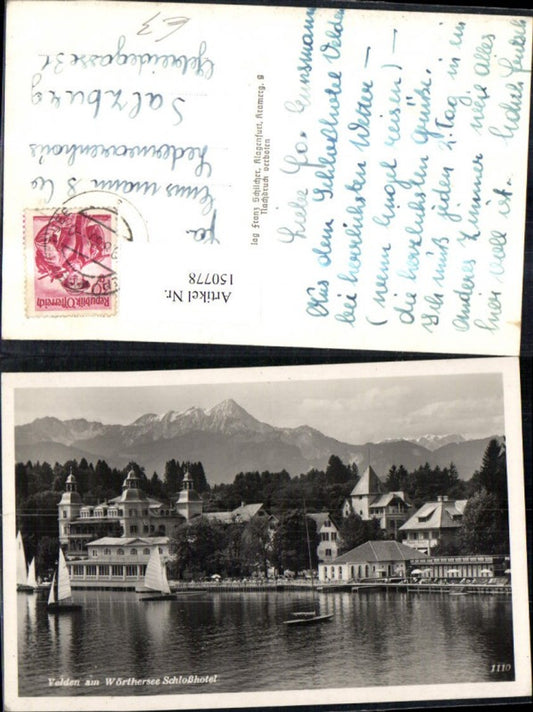 Liebe Fa. Ennsmann
Aus dem Schlosshotel Velden
bei herrlichsten Wetter –
(wenn Engel reisen) –
die herzlichsten Grüße.
Ich muß jeden 2. Tag in ein
anderes Zimmer weil alles
hier voll ist.
Fa.
Ennsmann & Co
Lederwarenhaus
Salzburg
Getreidegasse 31
Republik Österreich
lag Franz Schilcher, Klagenfurt, Kramerg. 9
Nachdruck verboten
Artikel Nr.
150778
Velden am Wörthersee Schloßhotel
1110